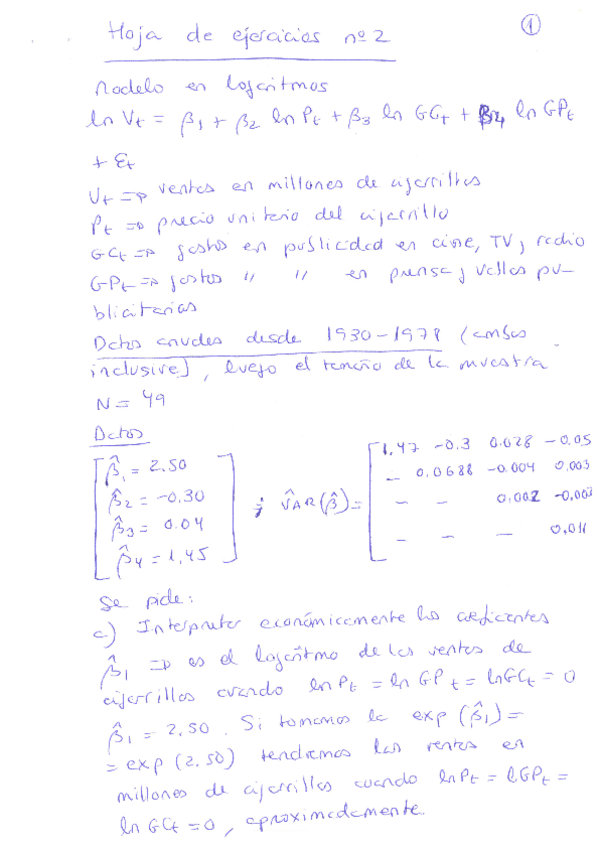 Hoja de ejercicios nº 2
1
Modelo en logaritmos
ln Vt = β1 + β2 ln Pt + β3 ln GCt + β4 ln GPt
+ Et
Vt => ventas en millones de cigarrillos
Pt => precio unitario del cigarrillo
GCt => gastos en publicidad en cine, TV y radio
GPt => gastos " " en prensa y vallas pu-
blicitarias
Datos anuales desde 1930-1978 (ambos
inclusive), luego el tamaño de la muestra
N = 49
Datos
β̂1 = 2.50
β̂2 = -0.30
β̂3 = 0.04
β̂4 = 1,45
; V̂AR(β̂) =
1,47 -0.3 0.028 -0.05
- 0,0688 -0.004 0.003
- - 0,002 -0,003
- - - 0,011
Se pide:
a) Interpretar económicamente los coeficientes
β̂1 => es el logaritmo de las ventas de
cigarrillos cuando ln Pt = ln GPt = ln GCt = 0
β̂1 = 2,50. Si tomamos la exp (β̂1) =
= exp (2.50) tendremos las ventas en
millones de cigarrillos cuando ln Pt = lGPt =
ln GCt = 0, aproximadamente.